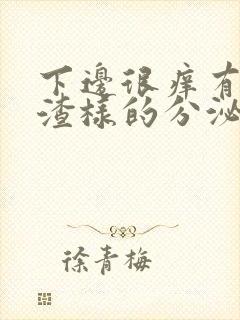 下邊很痒有
渣樣的分泌
徐青梅